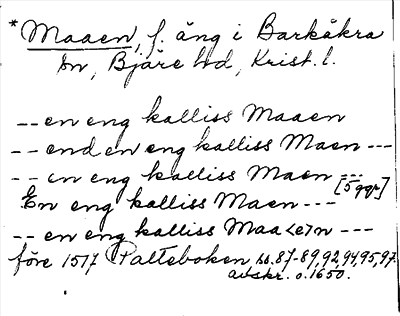 *Maaen, f. äng i Barkåkra
sn, Bjäre hd, Krist. l.
-- en eng kalliss Maaen
-- end en eng kalliss Maen ---
-- en eng kalliss Maen ---
En eng kalliss Maen --- [5 ggr]
-- en eng kalliss Maa<e>n ---
före 1517 Palteboken bl. 87-89, 92, 94, 95, 97.
avskr. o. 1650.